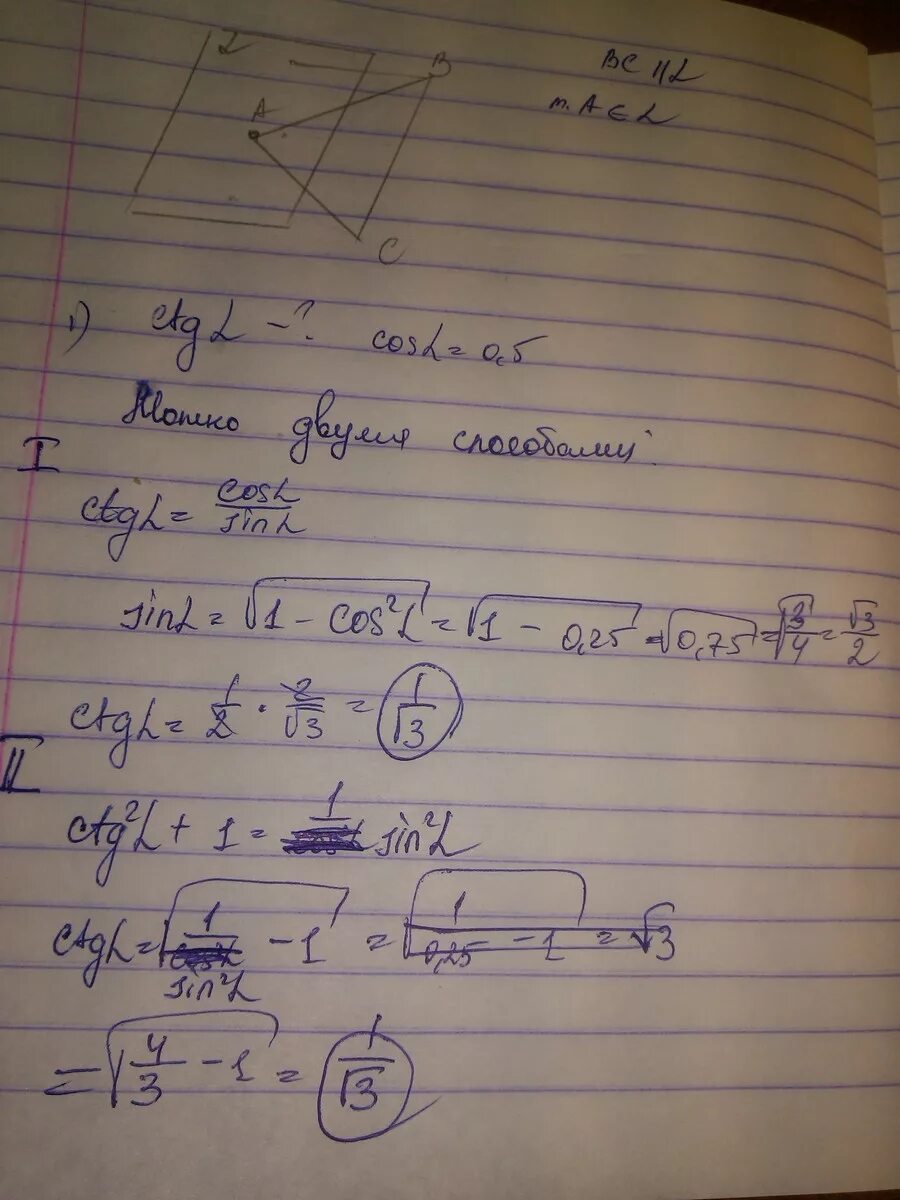 α
B
BC || α
A
т. A ∈ α
C
1) ctg α - ? cos α = 0,5
Можно двумя способами:
I
ctg α = cos α / sin α
sin α = √(1 - cos²α) = √(1 - 0,25) = √0,75 = √(3/4) = √3/2
ctg α = 1/2 · 2/√3 = 1/√3
II
ctg²α + 1 = 1/sin²α
ctg α = √(1/sin²α - 1) = √(1/0,25 - 1) = √3
= √(4/3 - 1) = 1/√3